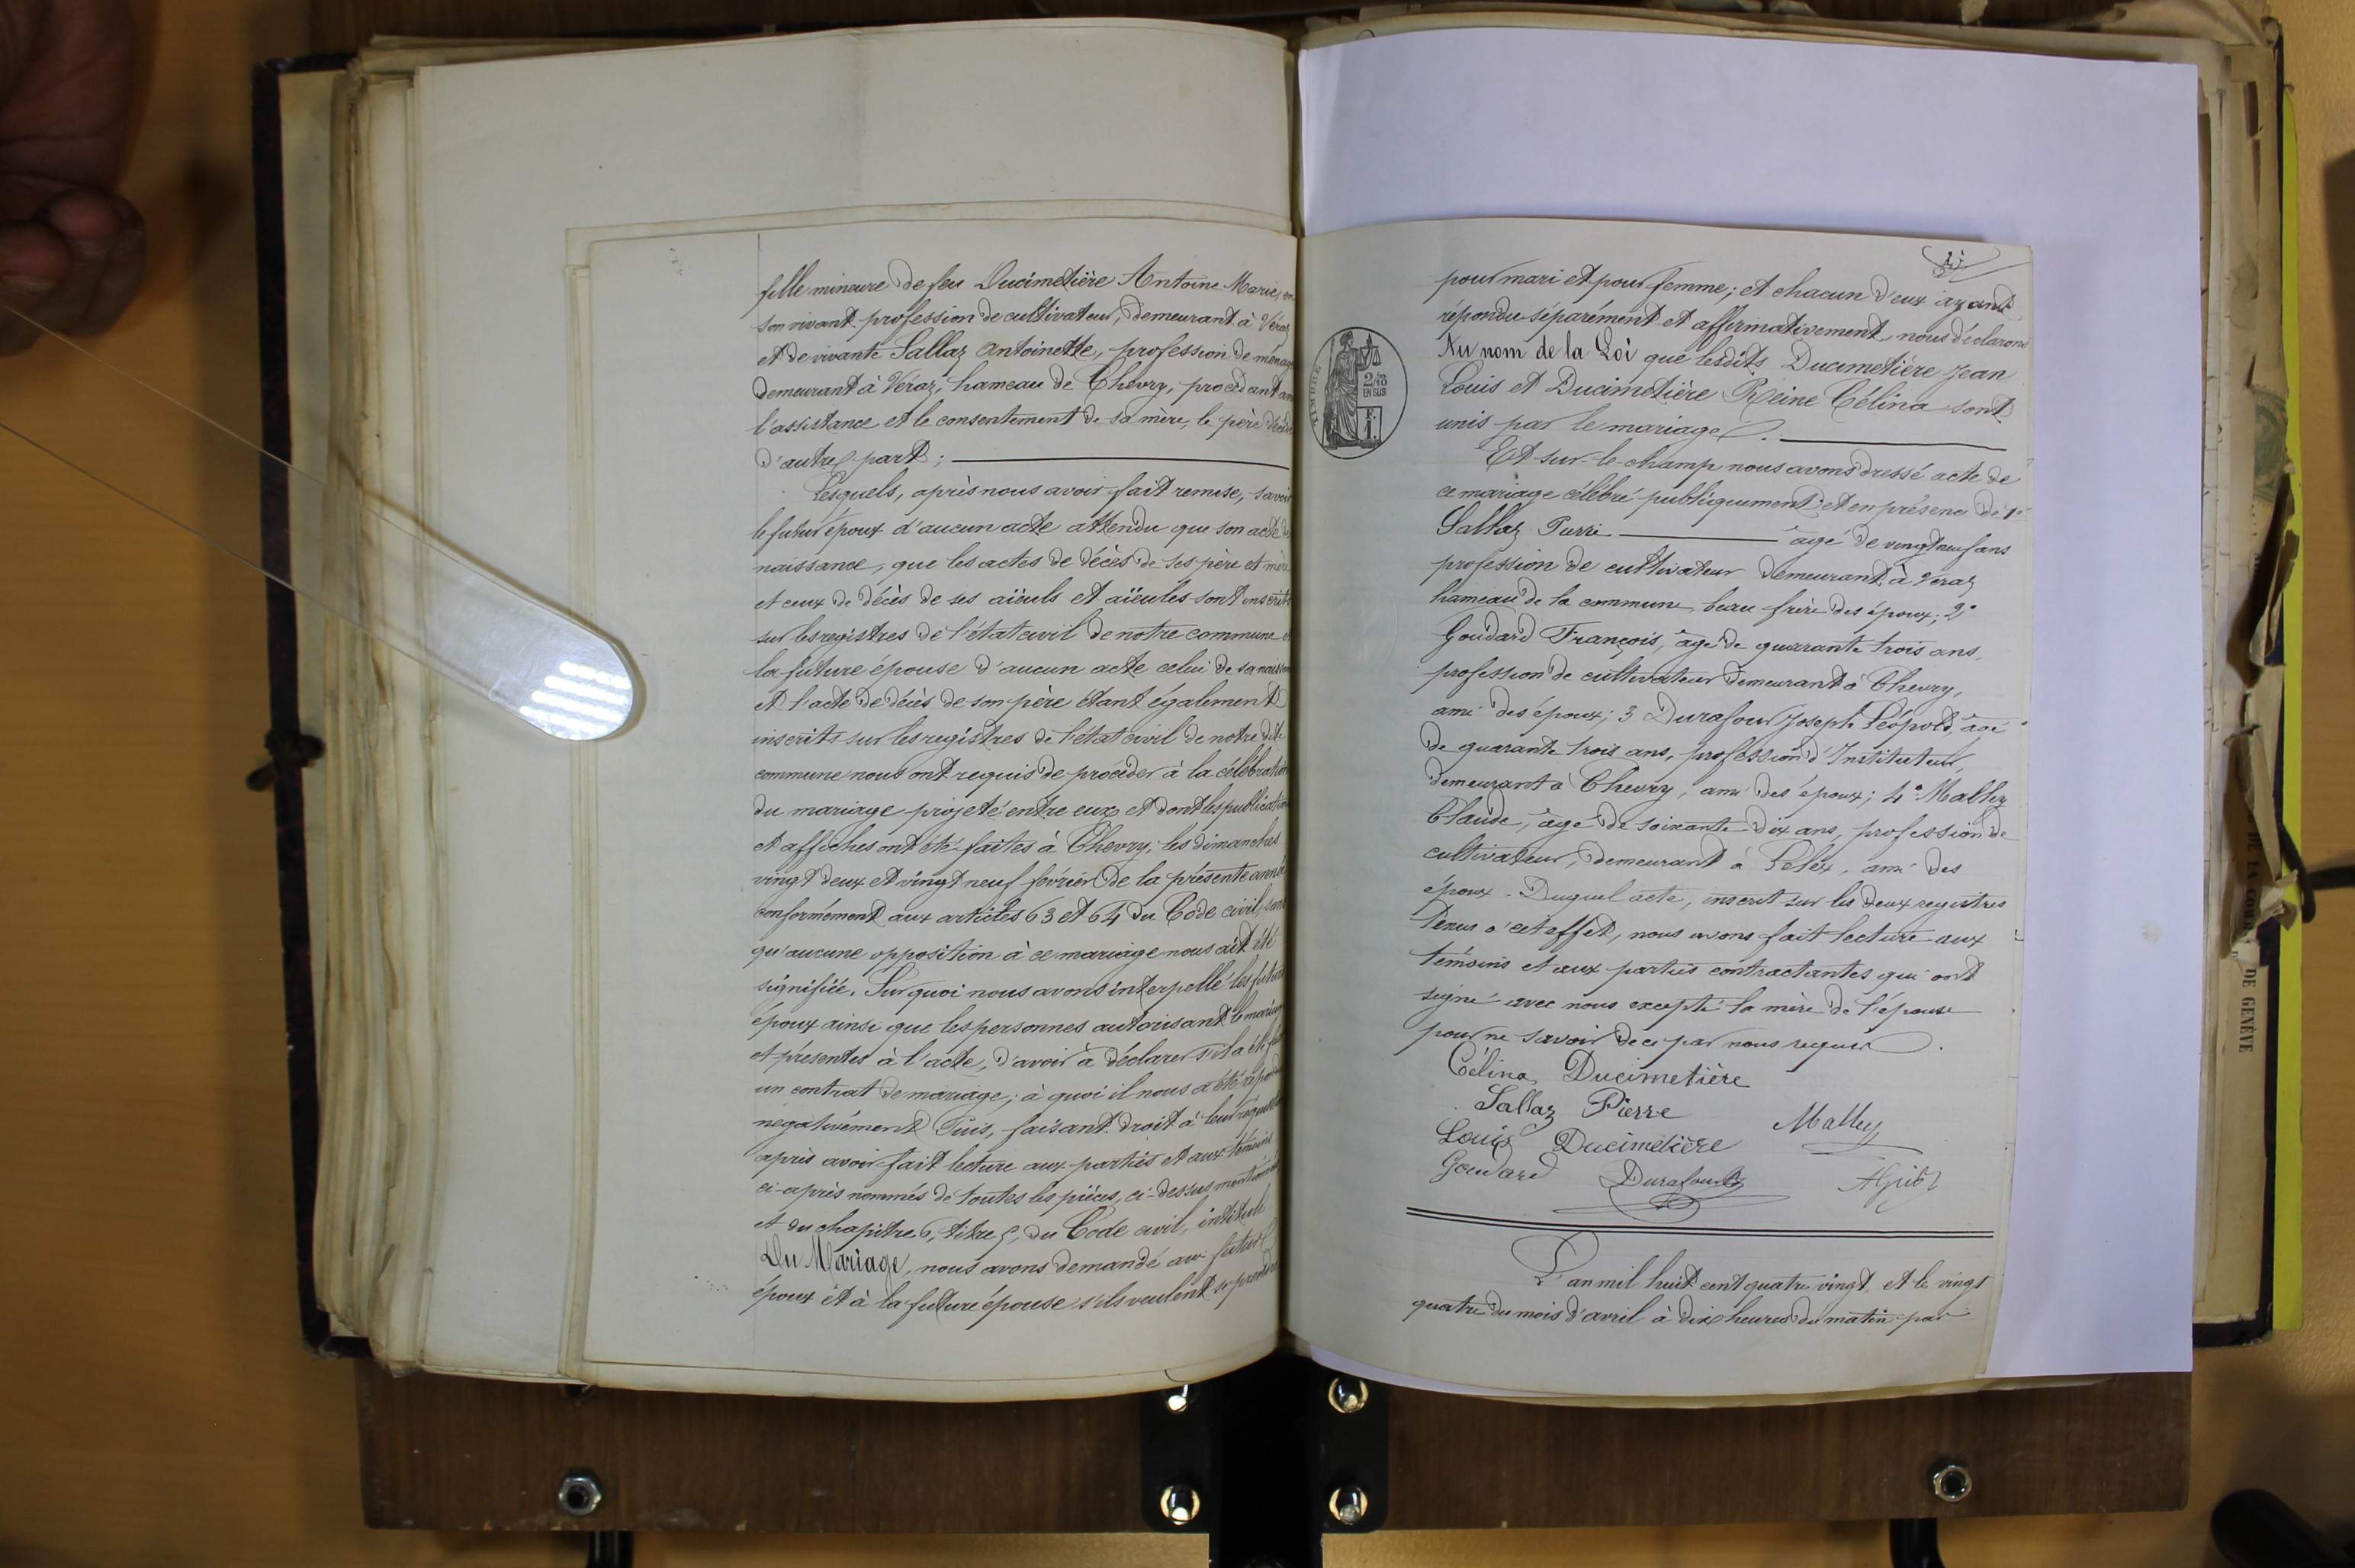 fille mineure de feu Ducimetière Antoine Marie, en
son vivant profession de cultivateur, demeurant à Véraz
et de vivante Sallaz Antoinette, profession de ménag
demeurant à Véraz, hameau de Chevry, procédant av
l'assistance et le consentement de sa mère, le père décéd
d'autre part ;
Lesquels, après nous avoir fait remise, savoir
le futur époux d'aucun acte attendu que son acte de
naissance, que les actes de décès de ses père et mère
et ceux de décès de ses aïeuls et aïeules sont inscrits
sur les registres de l'état civil de notre commune et
la future épouse d'aucun acte celui de sa naissan
et l'acte de décès de son père étant également
inscrits sur les registres de l'état civil de notre dite
commune nous ont requis de procéder à la célébration
du mariage projeté entre eux et dont les publication
et affiches ont été faites à Chevry, les dimanches
vingt deux et vingt neuf février de la présente année
conformément aux articles 63 et 64 du Code civil, sans
qu'aucune opposition à ce mariage nous ait été
signifiée. Sur quoi nous avons interpellé les futurs
époux ainsi que les personnes autorisant le mariag
et présentes à l'acte, d'avoir à déclarer s'il a été fait
un contrat de mariage ; à quoi il nous a été répondu
négativement Puis, faisant droit à leur réquisition
après avoir fait lecture aux parties et aux témoins
ci-après nommés de toutes les pièces, ci-dessus mentionnées
et du chapitre 6, titre 5, du Code civil, intitulé
Du Mariage, nous avons demandé au futur
époux et à la future épouse s'ils veulent se prendre
pour mari et pour femme ; et chacun d'eux ayant
répondu séparément et affirmativement, nous déclarons
Au nom de la Loi que lesdits Ducimetière Jean
Louis et Ducimetière Reine Célina sont
unis par le mariage.
Et sur-le-champ nous avons dressé acte de
ce mariage célébré publiquement et en présence de 1°
Sallaz Pierre âgé de vingt neuf ans
profession de cultivateur demeurant à Véraz
hameau de la commune, beau frère des époux ; 2°
Goudard François, âgé de quarante trois ans,
profession de cultivateur demeurant à Chevry,
ami des époux ; 3 Durafour Joseph Léopold, âgé
de quarante trois ans, profession d'Instituteur,
demeurant à Chevry, ami des époux ; 4° Malley
Claude, âgé de soixante-dix ans, profession de
cultivateur, demeurant à Lélex, ami des
époux. Duquel acte, inscrit sur les deux registres
tenus à cet effet, nous avons fait lecture aux
témoins et aux parties contractantes qui ont
signé avec nous excepté la mère de l'épouse
pour ne savoir de ce par nous requise.
Célina Ducimetière
Sallaz Pierre
Malley
Louis Ducimetière
Goudard
Durafour
TIMBRE
2/10
EN SUS
F.
1.
L'an mil huit cent quatre vingt, et le vingt
quatre du mois d'avril à dix heures du matin par
DE GENÈVE